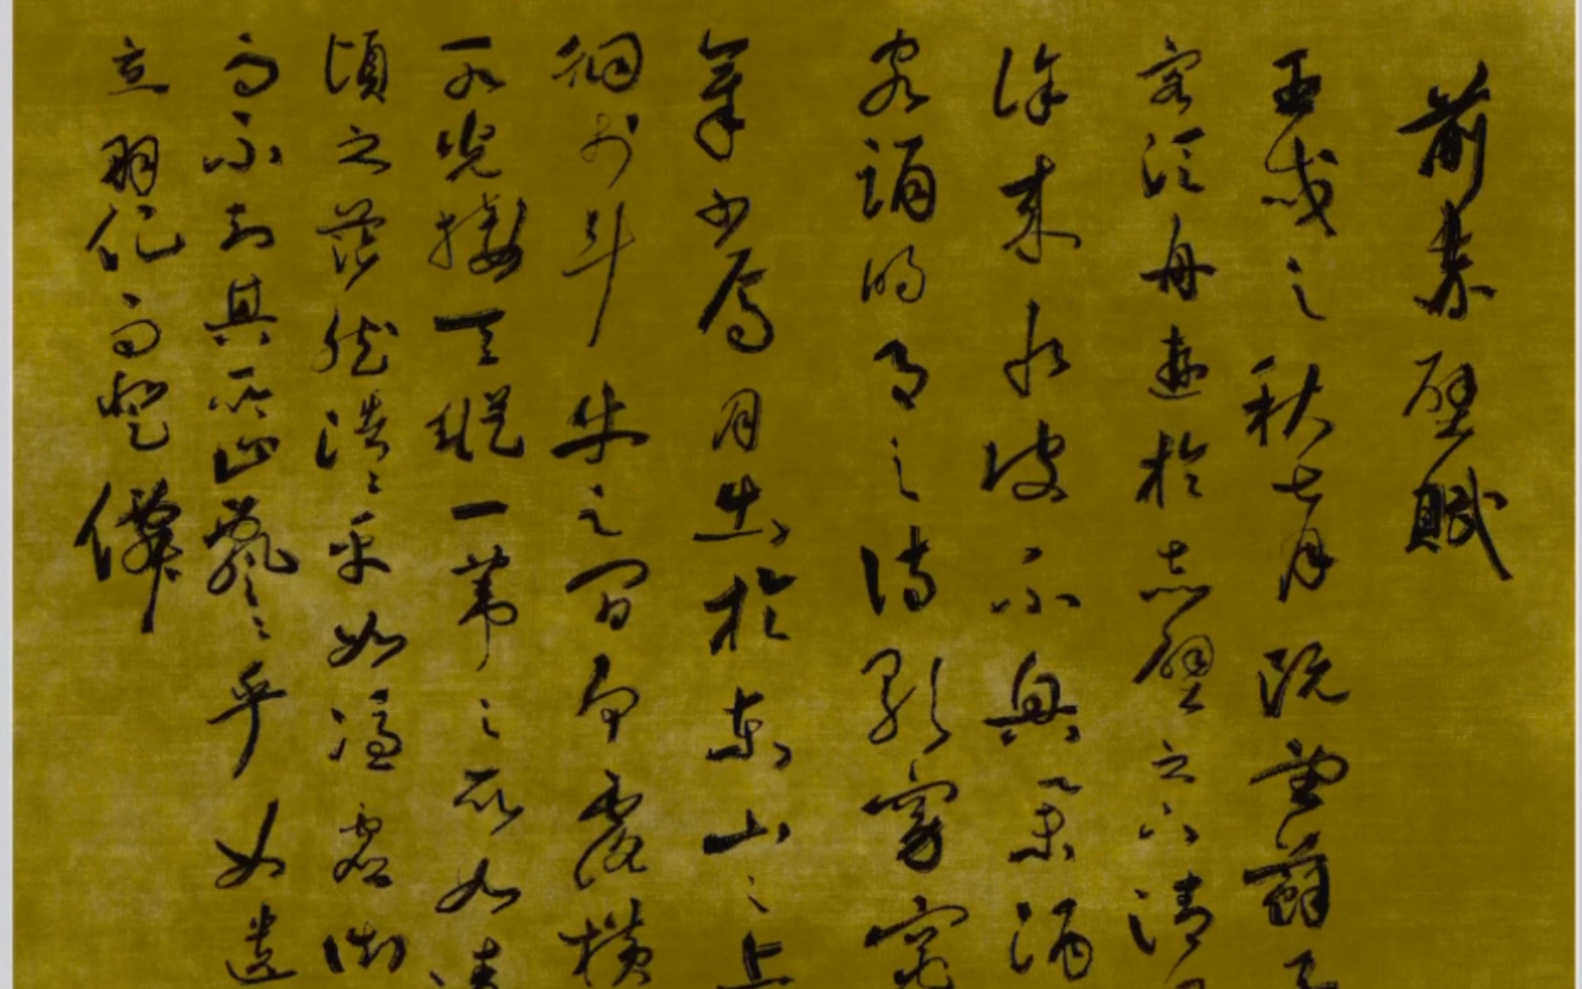 前赤壁賦
壬戌之秋七月既望蘇子
客泛舟遊於赤壁之下清
徐來水波不興舉酒
客誦明月之詩歌窈窕
章少焉月出於東山之上
徊於斗牛之間白露橫
水光接天縱一葦之所如凌
頃之茫然浩〻乎如馮虛御
而不知其所止飄〻乎如遺
立羽化而登僊